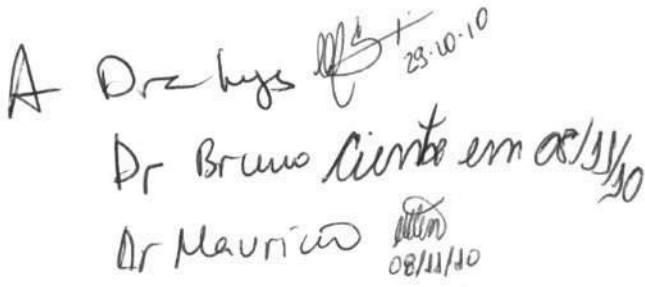 A Dra Lys 29.10.10
Dr Bruno Ciente em 08/11/10
Dr Mauricio
08/11/10